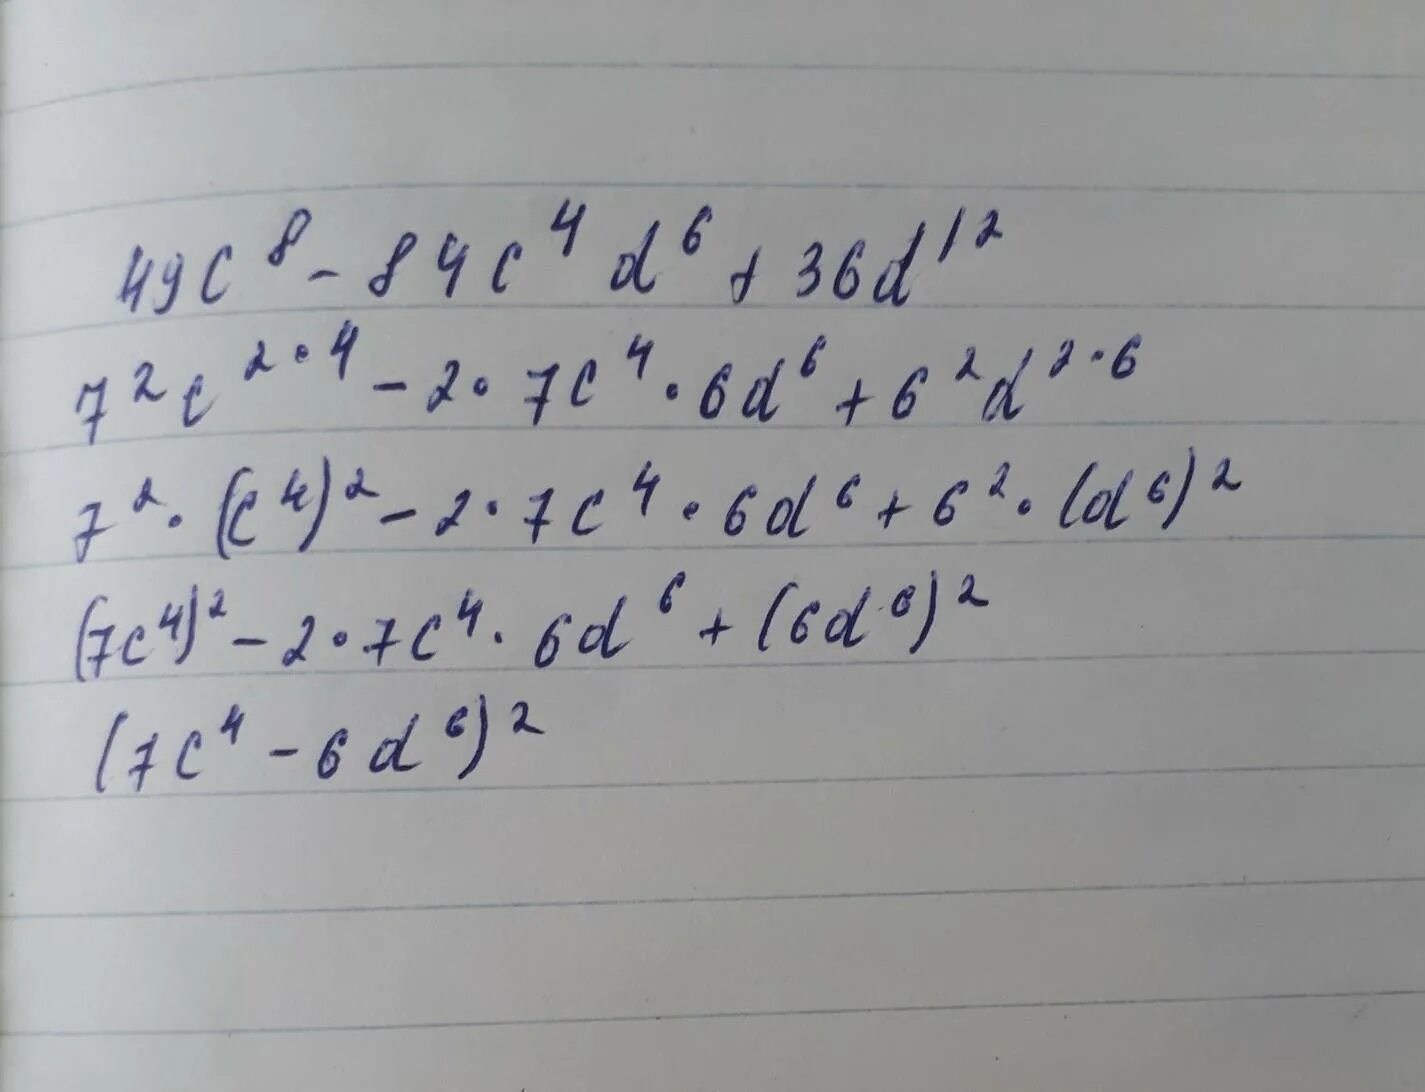 49c⁸ - 84c⁴d⁶ + 36d¹²
7²c²˙⁴ - 2·7c⁴·6d⁶ + 6²d²˙⁶
7²·(c⁴)² - 2·7c⁴·6d⁶ + 6²·(d⁶)²
(7c⁴)² - 2·7c⁴·6d⁶ + (6d⁶)²
(7c⁴ - 6d⁶)²